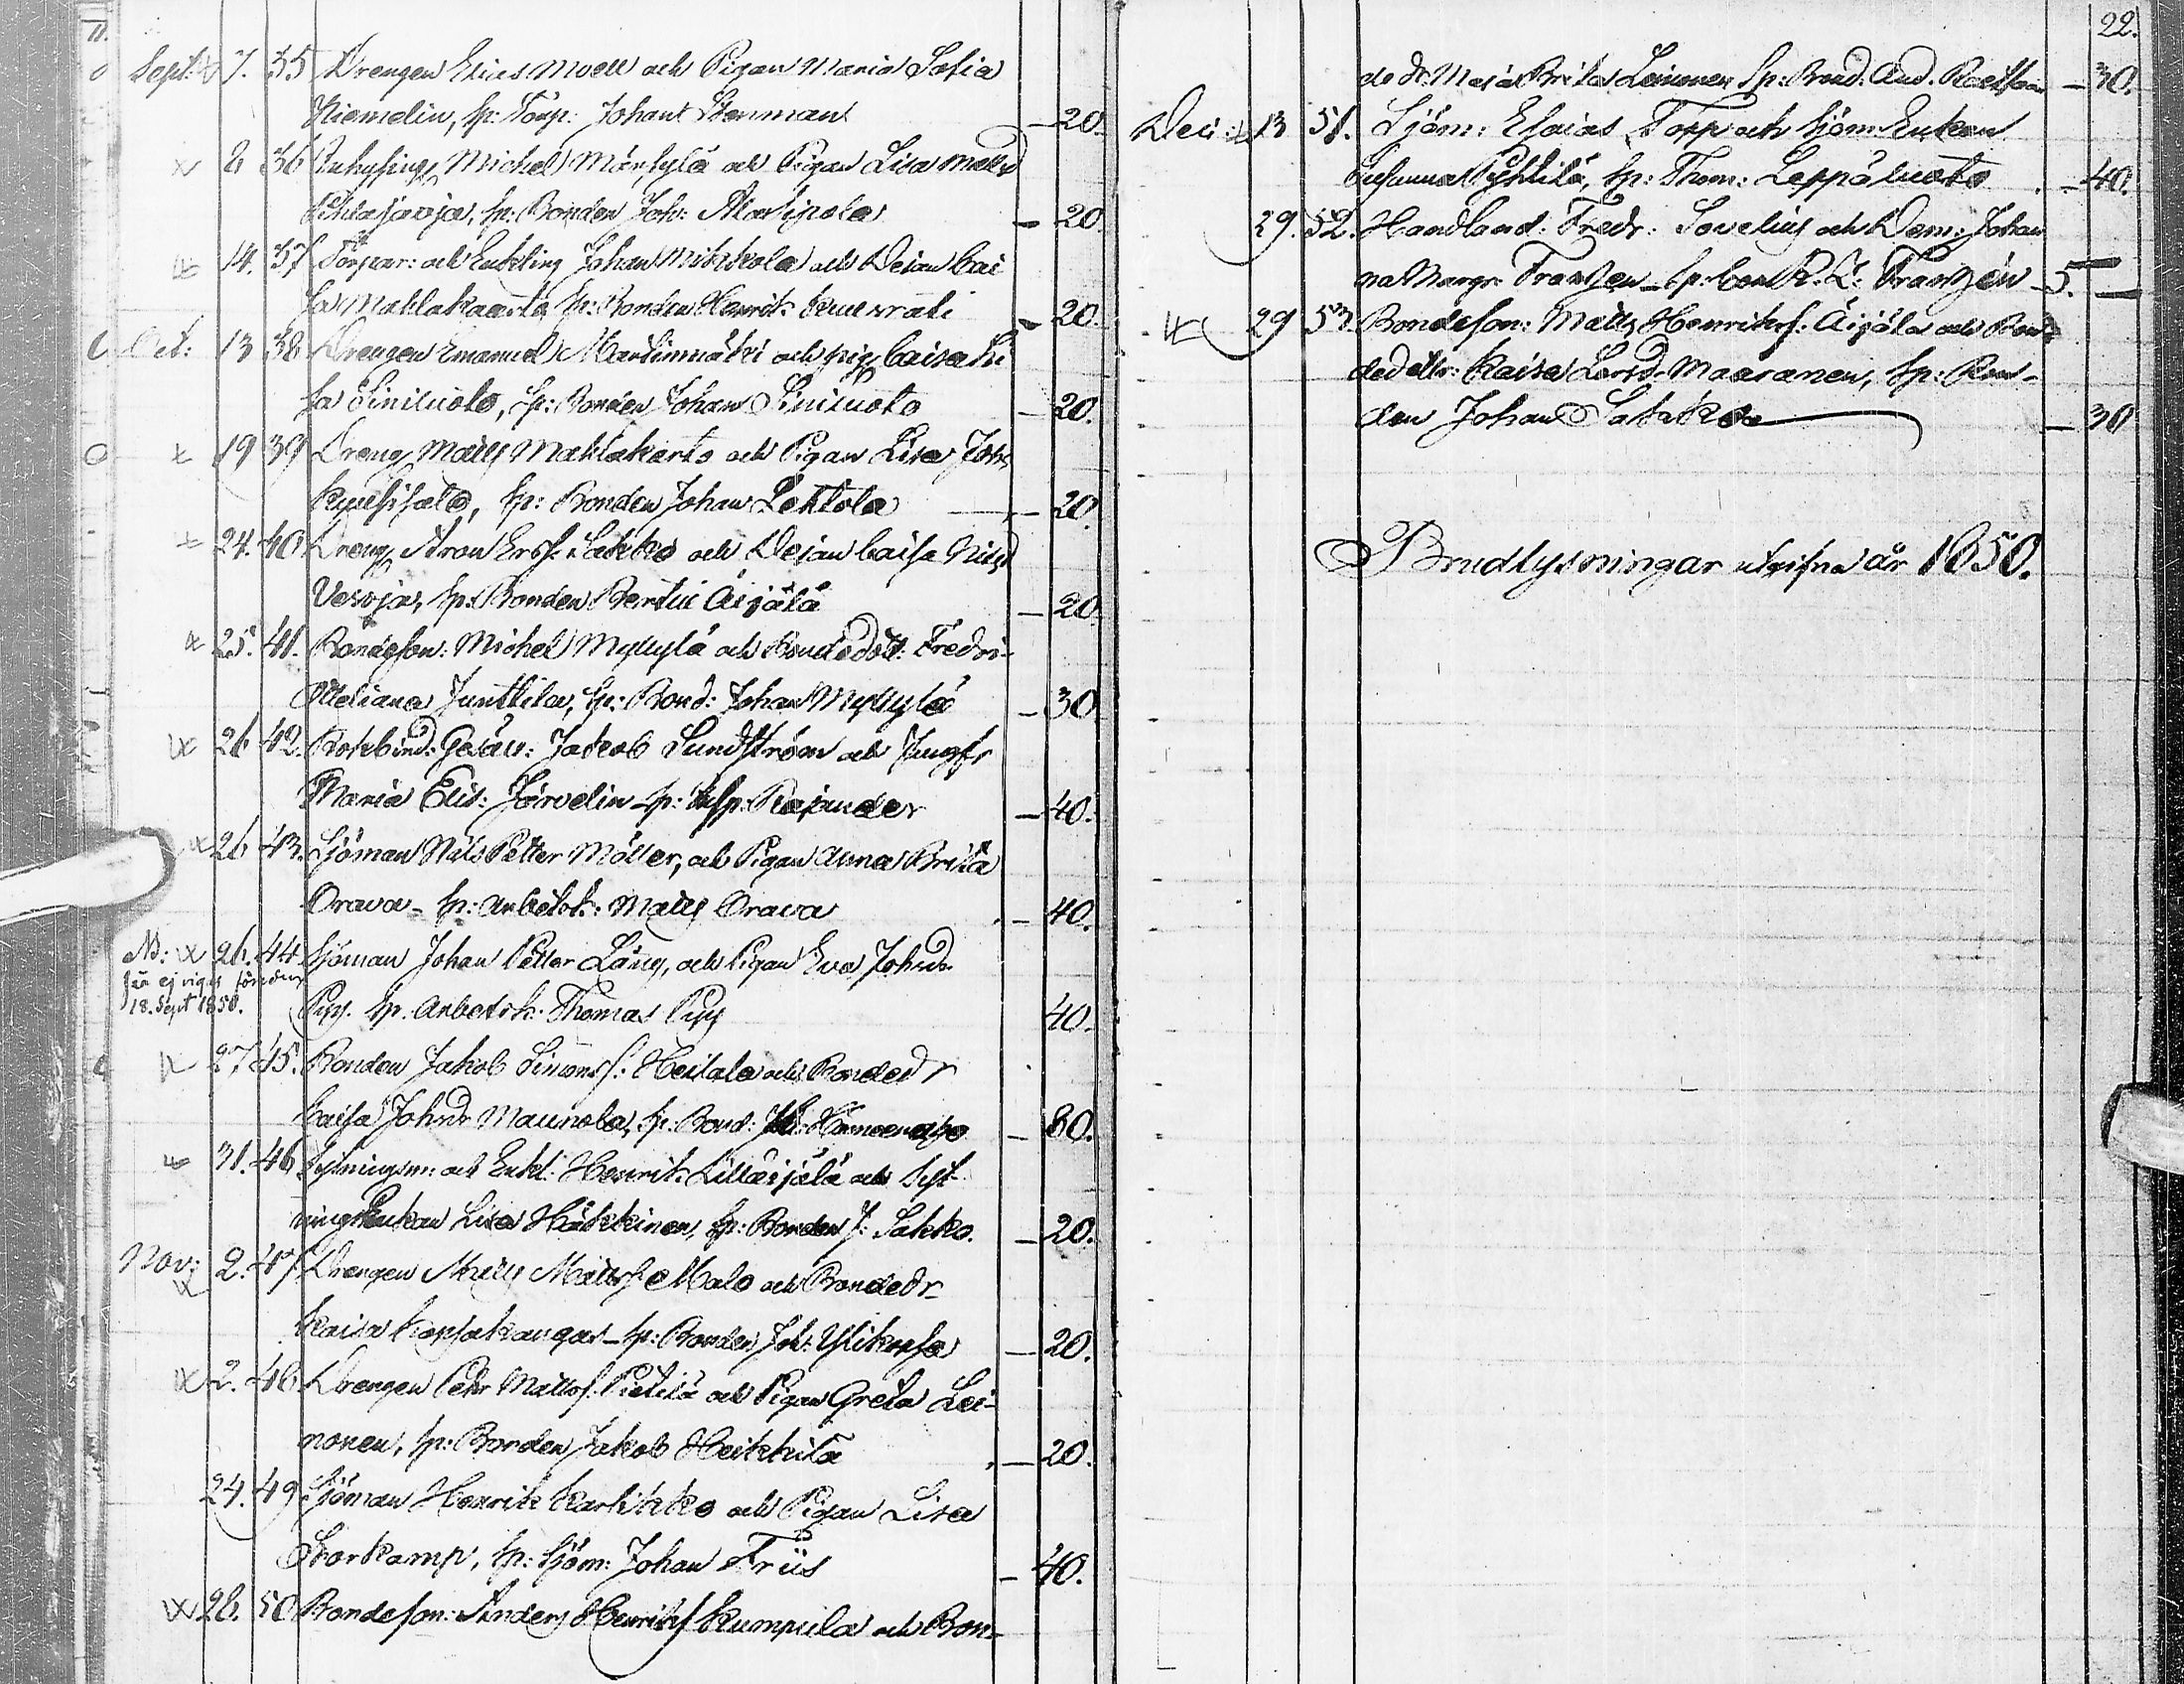 Sept: 7. 35 Drengen Elias Moell och Pigan Maria Sofia
Niemelin, Sp: Torp: Johan Stenman — 20.
8 36 Inhysing Michel Mär,kylä och Pigan Lisa Mattsd
Pihlajaoja, Sp: Bonden Joh: Marsipola — 20
14. 37 Torpar: och Enkling Johan Mikkola och Dejan Cai
sa Mahlakaarto Sp: Bonden Henrik — 20.
Oct: 13 38 Drengen Emanuel Martinmäki och pig. Caisa Li
sa Siniluoto, Sp: Bonden Johan Siniluoto — 20.
19 39 Dreng Matts Mahlakarto och Pigan Lisa Johs
Sp: Bonden Johan Lehtola — 20.
24. 40 Dreng Aron Ersf. Sakko och Dejan Caisa Nilsd
Vesoja, Sp: Bonden Bertil Äijälä — 20.
25. 41. Bondeson: Michel Myllylä och Bondedott: Fredri-
Meliana Junttila, Sp: Bond: Johan Myllylä — 30
26 42. Bokbind: Gesäll: Jakob Sundström och Jungfr
Maria Elis: Järvelin Sp: Insp: Rajander — 40.
26 43. Sjöman Nils Petter Möller, och Pigan Anna Brita
Orava — Sp: Arbetsk: Matts Orava — 40.
NB: 26. 44. Sjöman Johan Petter Lång, och Pigan Eva Johsdr
får ej vigas förr än
18. Sept 1850.
Pyy. Sp. Arbetsk. Thomas Pyy 40.
27 45. Bonden Jakob Simonsf: Heitala och Bondedr
Caisa Johsdr Maunola, Sp: Bond: — 80.
31. 46 Sytningsm: och Enkl: Henrik Lilläijälä och Syt-
nings Enkan Lisa Häkkinen, Sp: Bonden J: Sakko. — 20.
Nov: 2. 47 Drengen Matts Mattsf. Malo och Bondedr
Kaisa Korpakangas — Sp: Bonden Joh: Ylikorpe — 20.
2. 48. Drengen Pehr Mattsf. Pietilä och Pigan Greta Lei-
nonen, Sp: Bonden Jakob Heikkilä — 20.
24. 49 Sjöman Henrik Karhkko och Pigan Lisa
Storkamp, Sp: Sjöm: Johan Friis — 40.
28. 50 Bondeson: Anders Henriksf Kumpula och Bon-
22.
de dr. Maja Brita Leinonen Sp: Bond. And. — 30.
Dec: 13 51. Sjöm: Esaias Topp och Sjöm: Enkan
Susanna Pyhtilä, Sp: Thom: Leppäluoto — 40.
29. 52. Handland: Fredr: Sovelius och Dem: Johan
na Margr. Franzen — Sp: R. Z: Franzén — 5. —
29 53. Bondeson: Matts Henriksf: Äijälä och Bon
dedottr: Kaisa Larsd. Maaranen, Sp: Bon-
den Johan Sakko — 30
Brudlysningar utgifna år 1850.